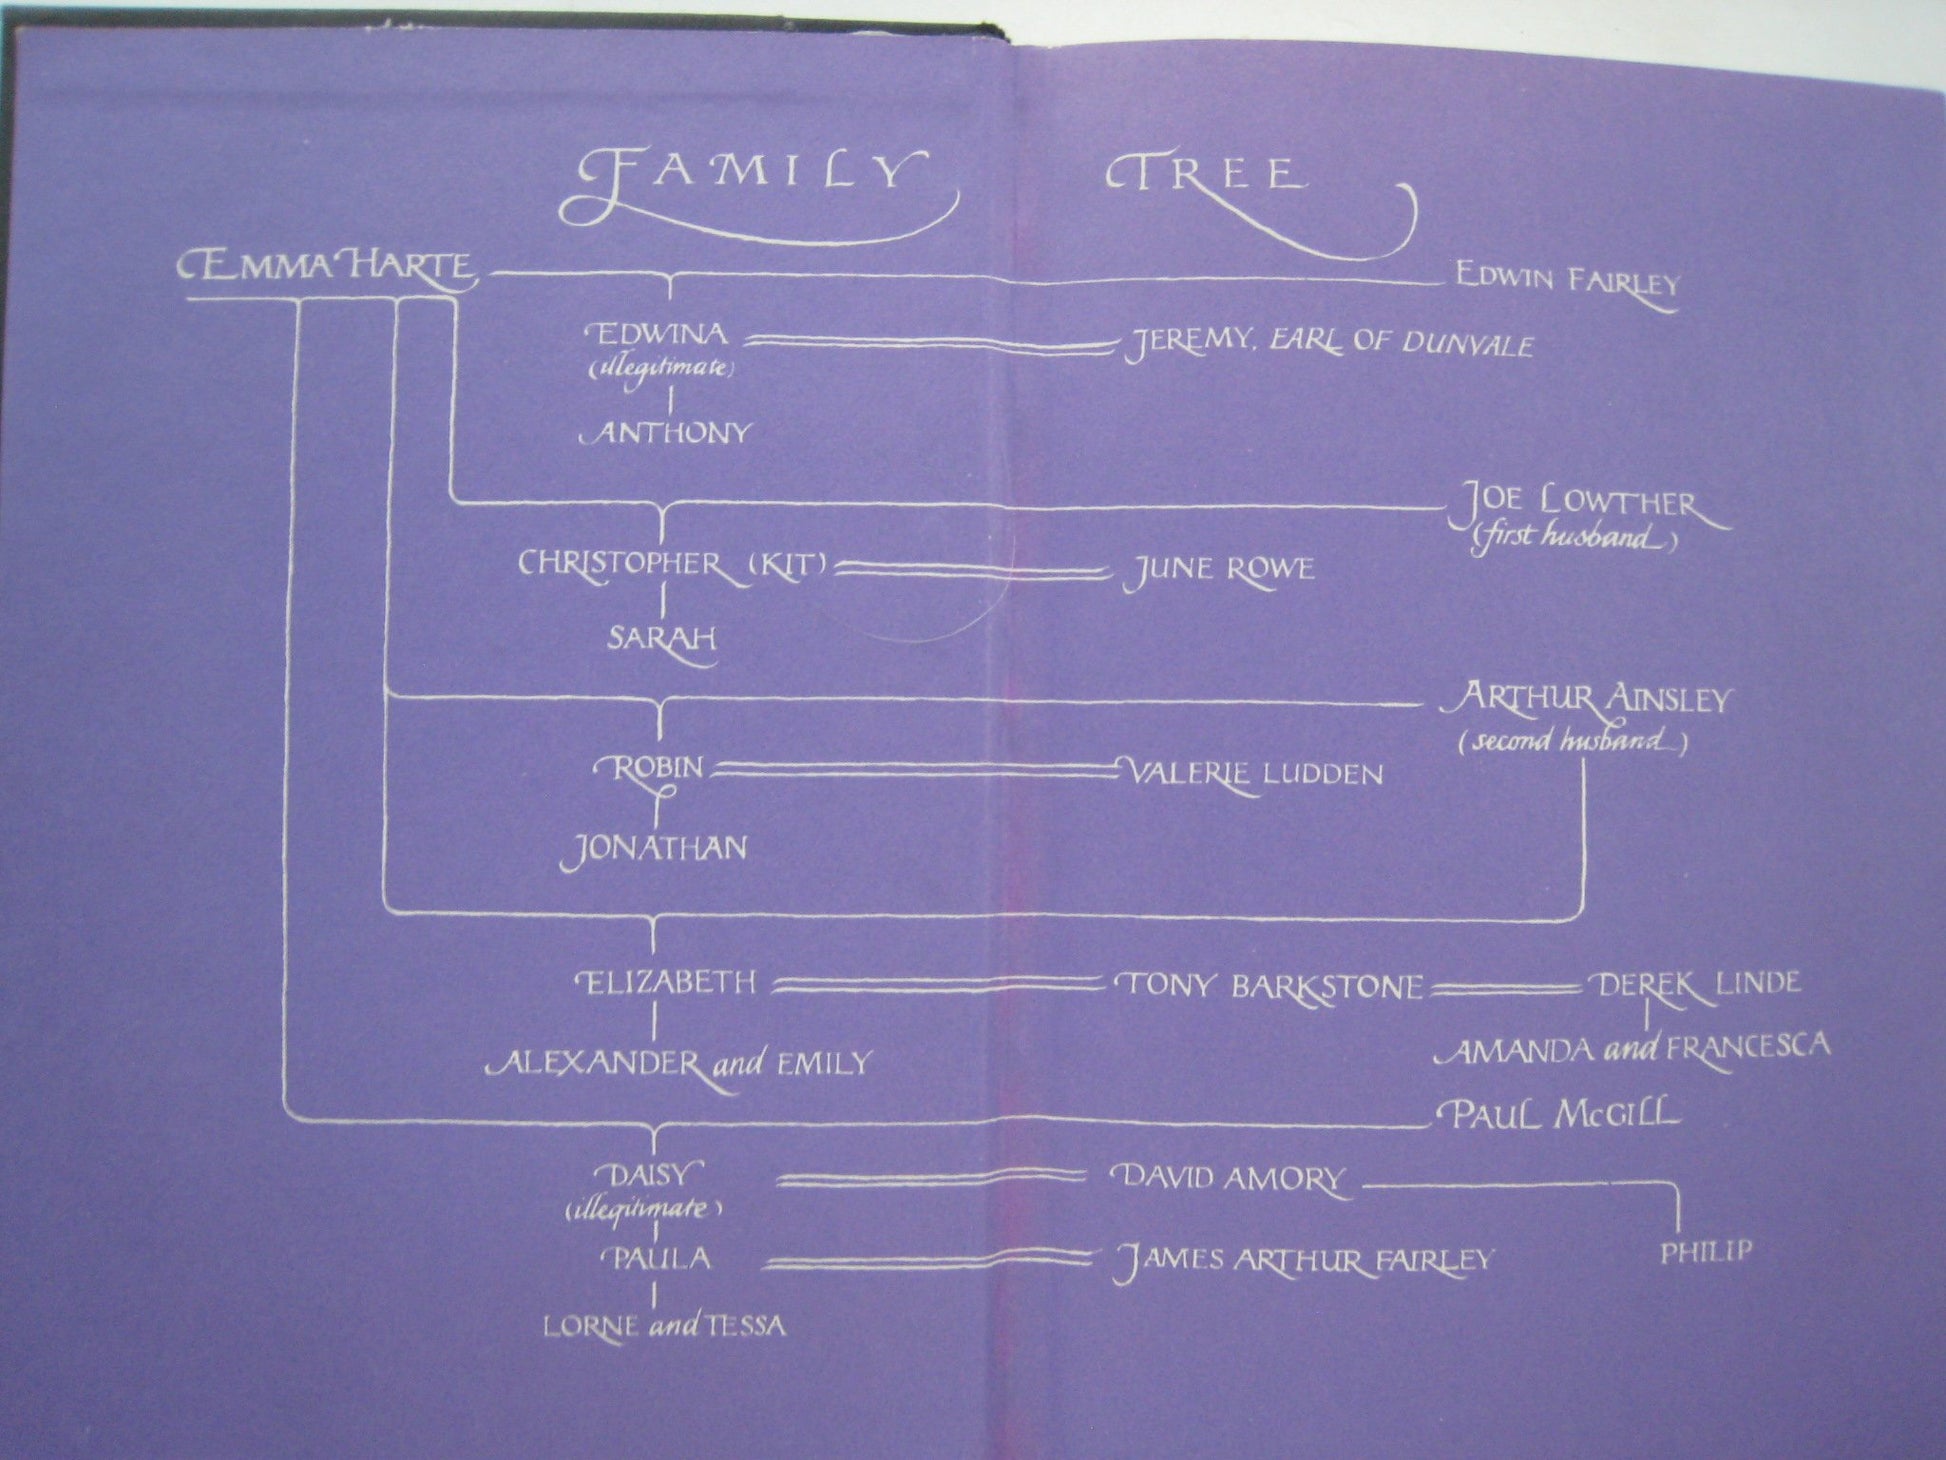 FAMILY TREE
EMMA HARTE EDWIN FAIRLEY
EDWINA JEREMY, EARL OF DUNVALE
(illegitimate)
ANTHONY
JOE LOWTHER
(first husband)
CHRISTOPHER (KIT) JUNE ROWE
SARAH
ARTHUR AINSLEY
(second husband)
ROBIN VALERIE LUDDEN
JONATHAN
ELIZABETH TONY BARKSTONE DEREK LINDE
ALEXANDER and EMILY AMANDA and FRANCESCA
PAUL McGILL
DAISY DAVID AMORY
(illegitimate)
PAULA JAMES ARTHUR FAIRLEY PHILIP
LORNE and TESSA